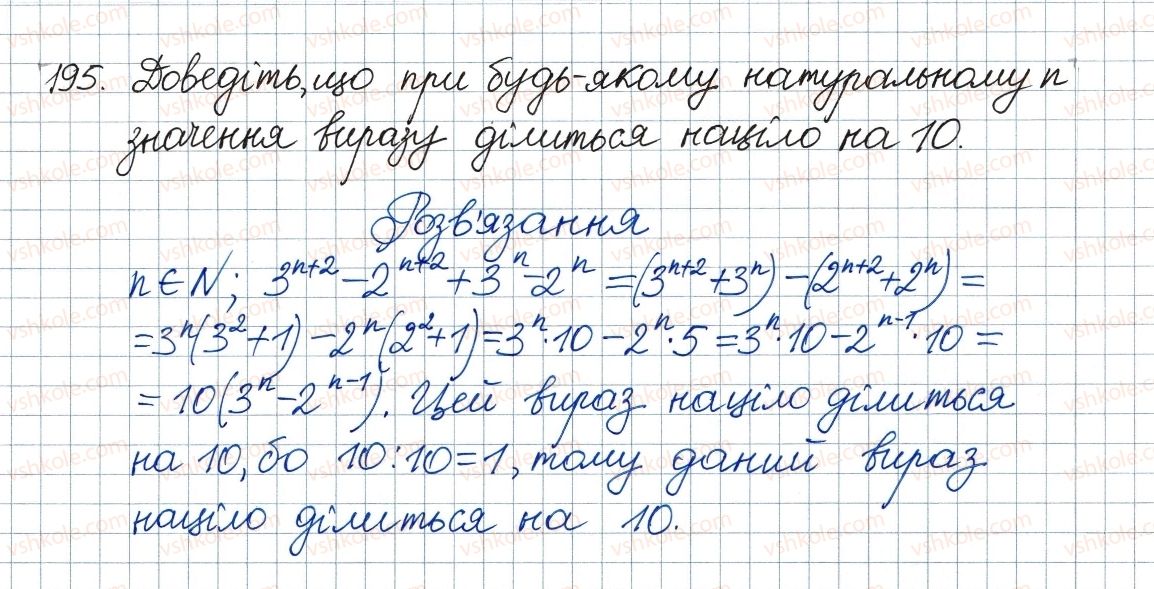 195. Доведіть, що при будь-якому натуральному n
значення виразу ділиться націло на 10.
Розв'язання
n∈N; 3ⁿ⁺² - 2ⁿ⁺² + 3ⁿ - 2ⁿ = (3ⁿ⁺² + 3ⁿ) - (2ⁿ⁺² + 2ⁿ) =
= 3ⁿ(3² + 1) - 2ⁿ(2² + 1) = 3ⁿ·10 - 2ⁿ·5 = 3ⁿ·10 - 2ⁿ⁻¹·10 =
= 10(3ⁿ - 2ⁿ⁻¹). Цей вираз націло ділиться
на 10, бо 10:10=1, тому даний вираз
націло ділиться на 10.